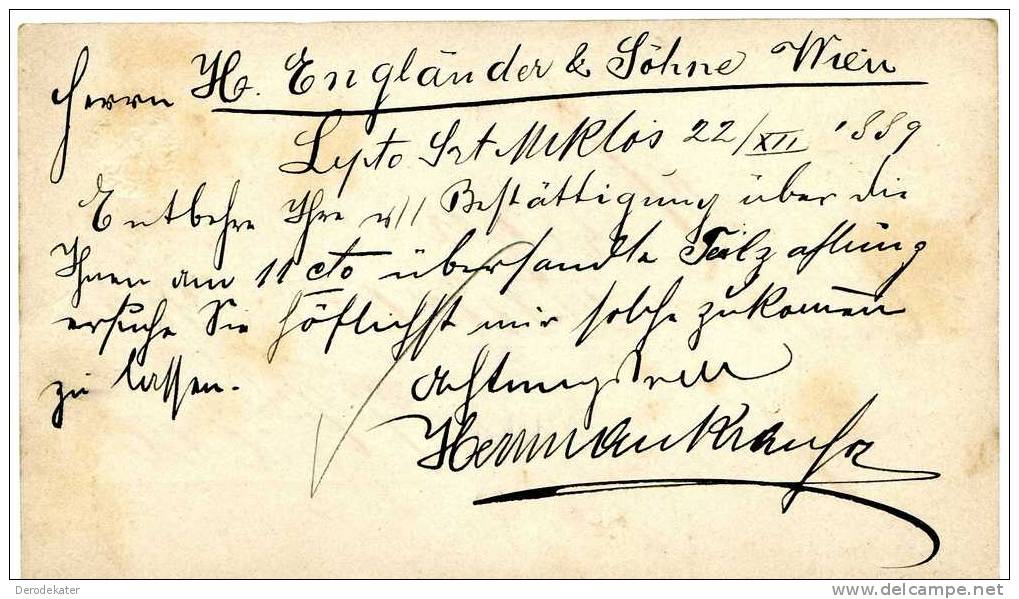 Herrn H. Engländer & Söhne Wien
Lipto Szt Miklós 22/XII 1889
Entbehre Ihre Bestättigung über die
Ihnen am 11 cto übersandte Teilzahlung
ersuche Sie höflichst mir solche zukom̅en
zu lassen.
Achtungsvoll
Herrman Kransz
Derodekater
delcampe.net